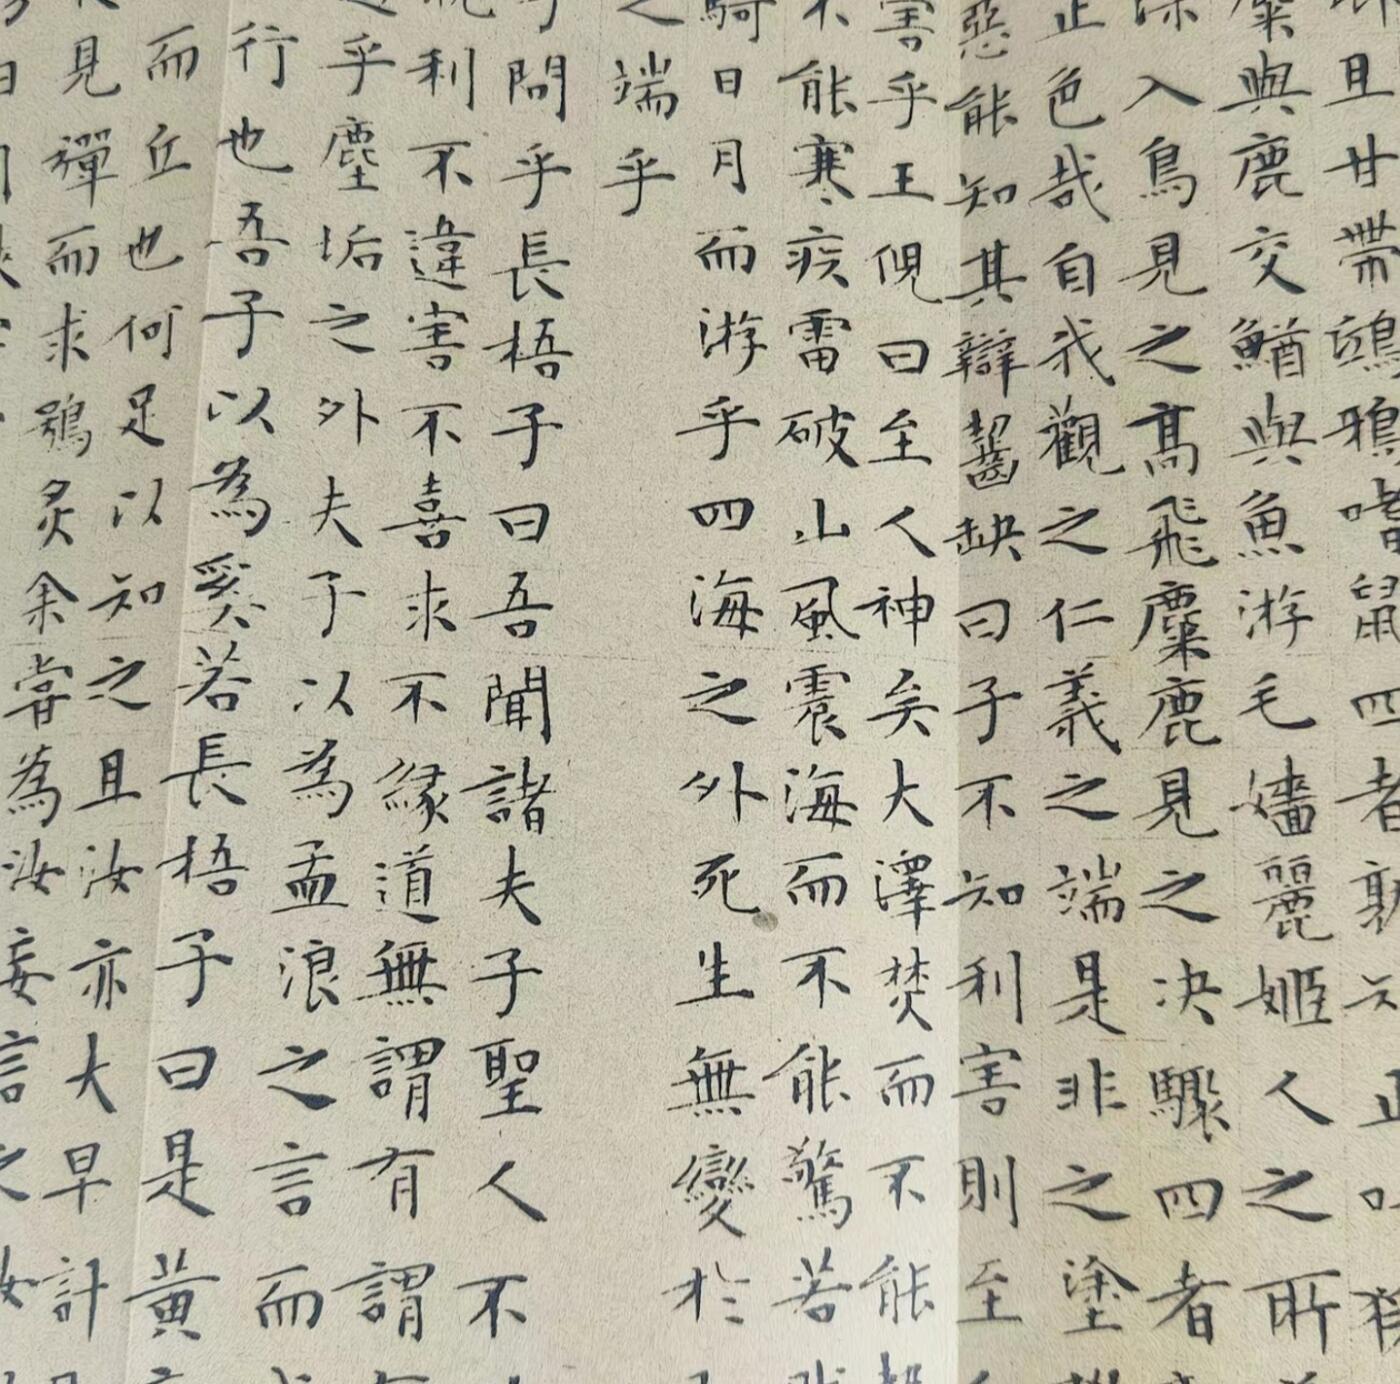 且甘帶鴟鴉嗜鼠四者孰知正
麋與鹿交鰌與魚游毛嬙麗姬人之所
深入鳥見之高飛麋鹿見之決驟四者
正色哉自我觀之仁義之端是非之塗
惡能知其辯齧缺曰子不知利害則至
害乎王倪曰至人神矣大澤焚而不能
不能寒疾雷破山風震海而不能驚若
騎日月而游乎四海之外死生無變於
之端乎
問乎長梧子曰吾聞諸夫子聖人不
利不違害不喜求不緣道無謂有謂
乎塵垢之外夫子以為孟浪之言而
行也吾子以為奚若長梧子曰是黃
而丘也何足以知之且汝亦大早計
見彈而求鴞炙余嘗為汝妄言之汝